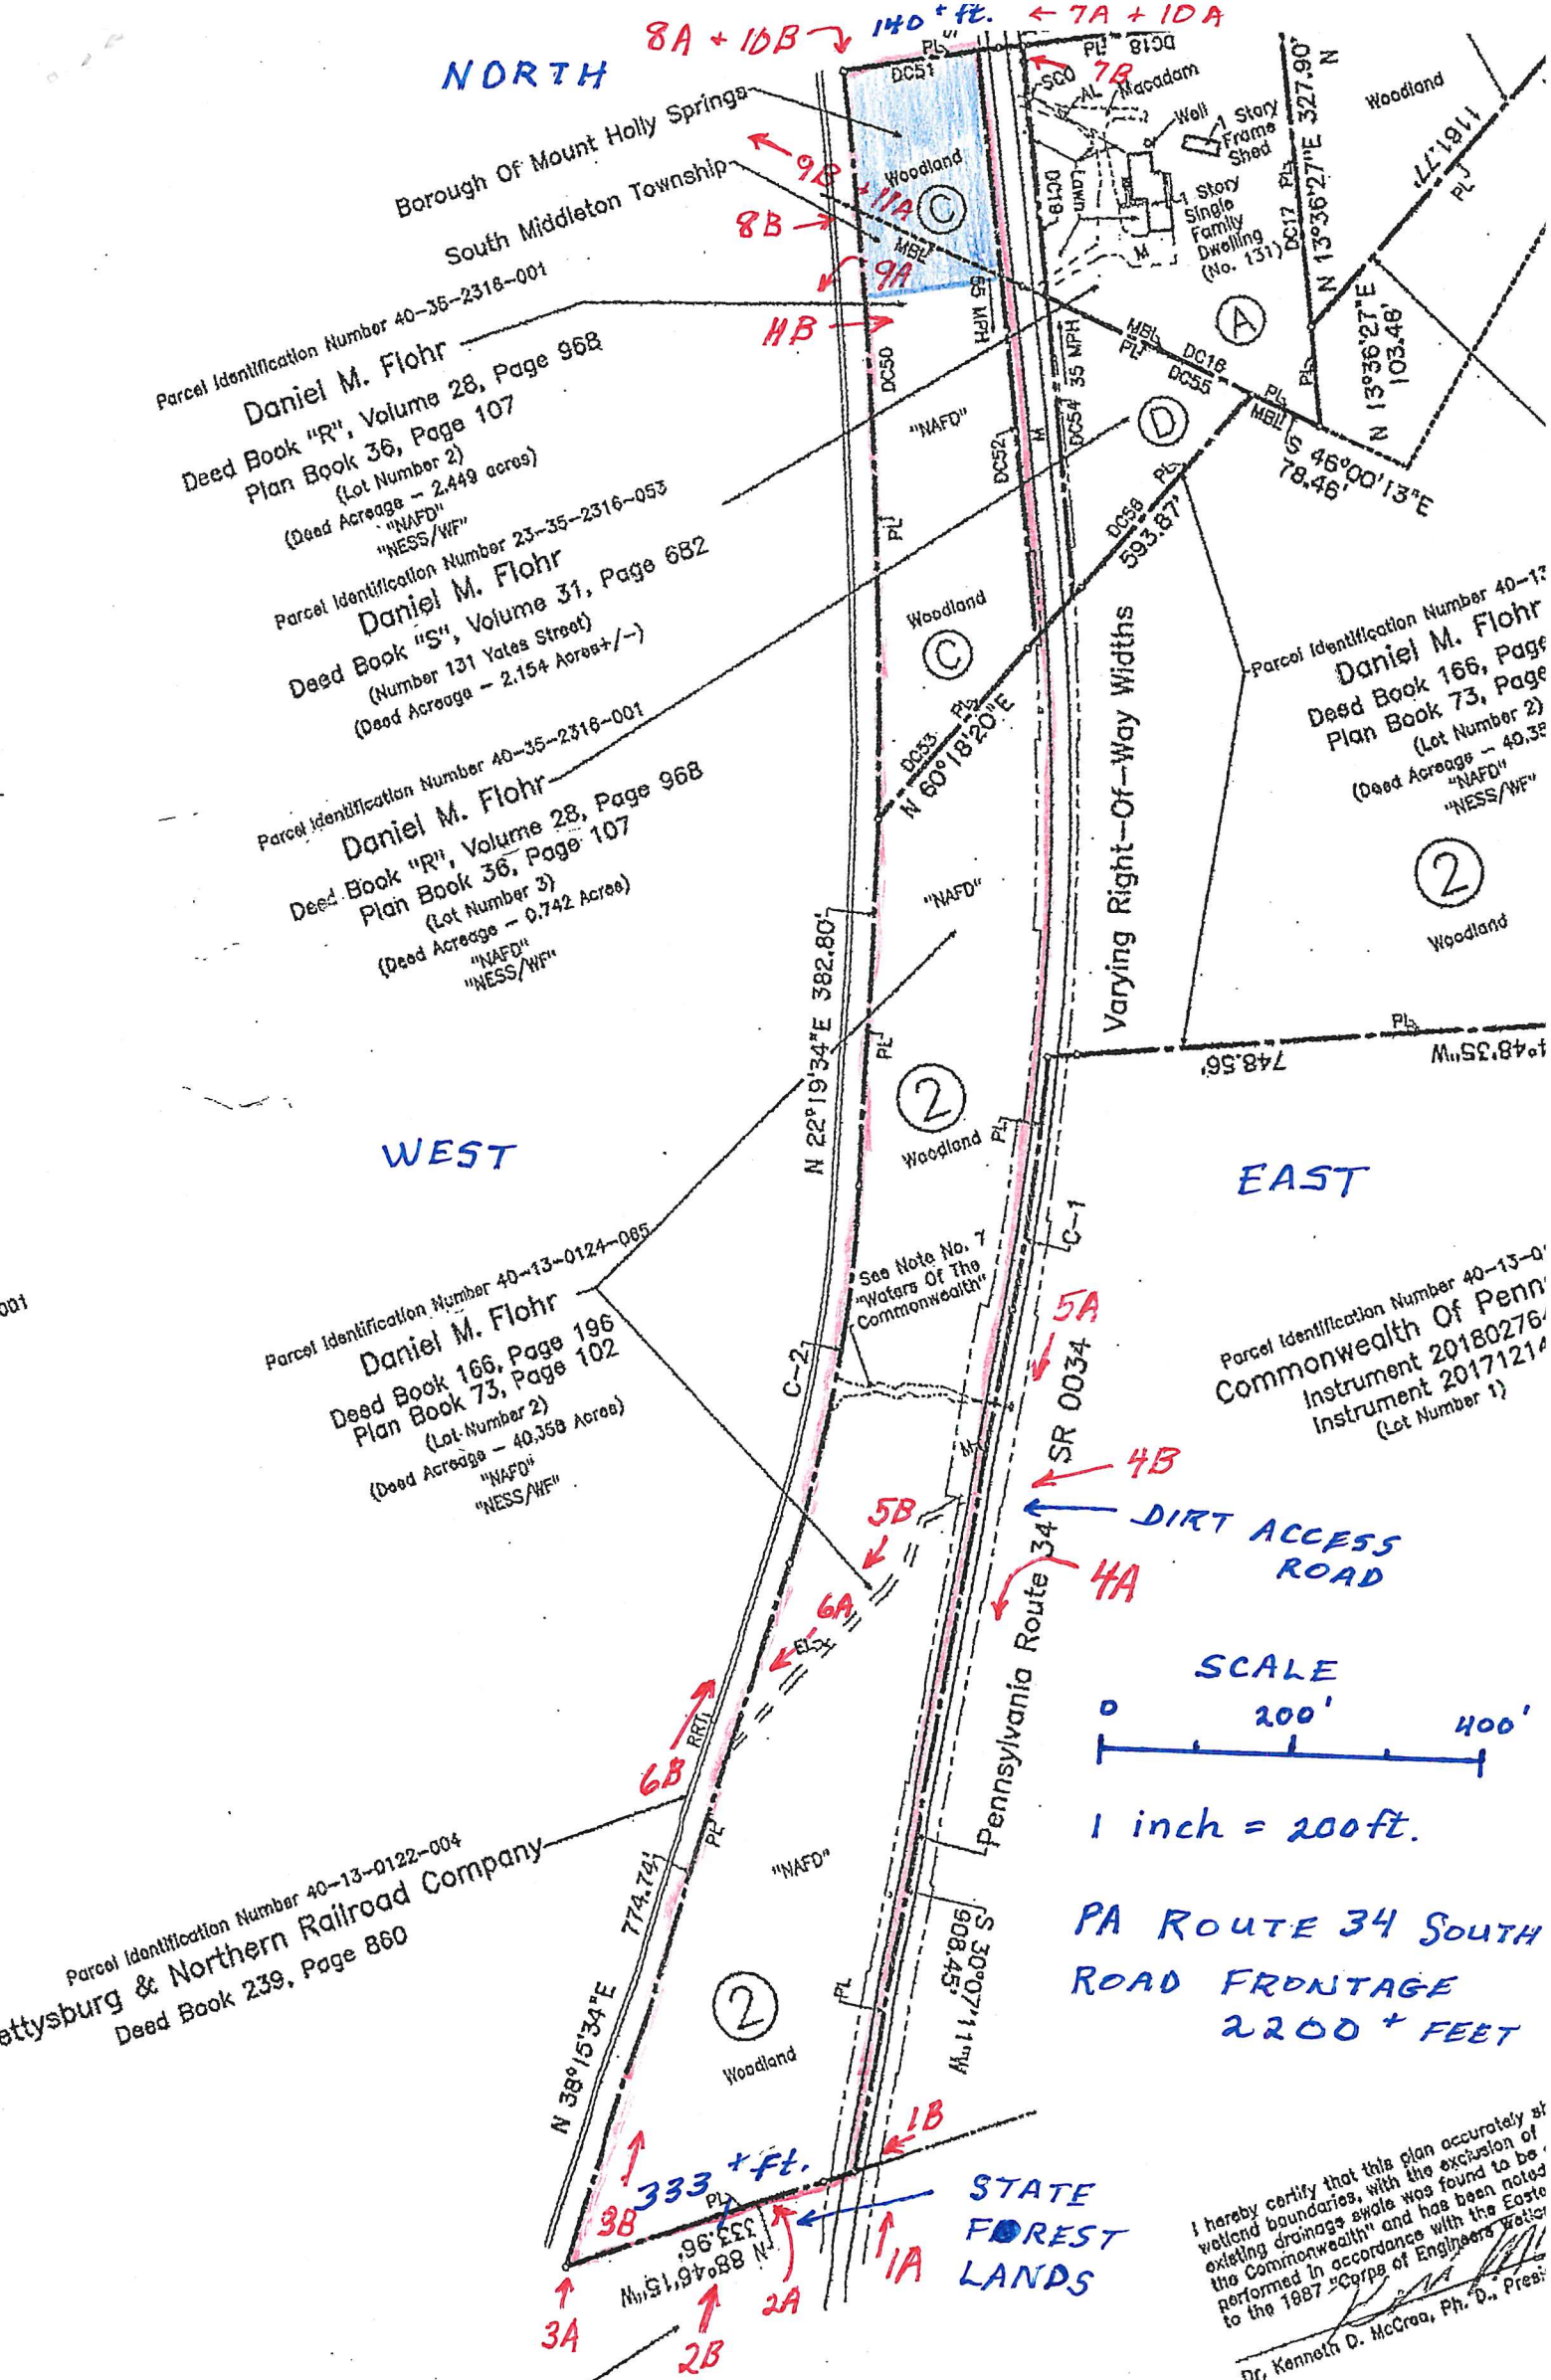 8A + 10B
140 + ft.
← 7A + 10A
NORTH
PL
DC51
PL
DC18
7B
SCO
AL
Macadam
Well
1 Story
Frame
Shed
Lawn
DC19
1 Story
Single
Family
Dwelling
(No. 131)
M
DC17
PL
N 13°36'27"E 327.90'
N
Woodland
1161.77'
PL
Borough Of Mount Holly Springs
South Middleton Township
Woodland
C
9B + 11A
8B
MBL
9A
11B
65 MPH
A
N 13°36'27"E
103.48'
Parcel Identification Number 40-35-2316-001
Daniel M. Flohr
Deed Book "R", Volume 28, Page 968
Plan Book 36, Page 107
(Lot Number 2)
(Deed Acreage - 2.449 acres)
"NAFD"
"NESS/WF"
DC50
"NAFD"
DC52
M
DC54
35 MPH
MBL
PL
DC16
DC55
D
PL
PL
MBL
S 46°00'13"E
78.46'
PL
PL
DC56
593.87'
Parcel Identification Number 23-35-2316-053
Daniel M. Flohr
Deed Book "S", Volume 31, Page 682
(Number 131 Yates Street)
(Deed Acreage - 2.154 Acres+/-)
Woodland
C
PL
DC53
N 60°18'20"E
Varying Right-Of-Way Widths
Parcel Identification Number 40-13
Daniel M. Flohr
Deed Book 166, Page
Plan Book 73, Page
(Lot Number 2)
(Deed Acreage - 40.35
"NAFD"
"NESS/WF"
2
Woodland
Parcel Identification Number 40-35-2316-001
Daniel M. Flohr
Deed Book "R", Volume 28, Page 968
Plan Book 36, Page 107
(Lot Number 3)
(Deed Acreage - 0.742 Acres)
"NAFD"
"NESS/WF"
"NAFD"
N 22°19'34"E 382.80'
PL
2
Woodland
PL
PL
748.56'
4°48'35"W
WEST
EAST
001
See Note No. 7
"Waters Of The
Commonwealth"
C-1
C-2
5A
Parcel Identification Number 40-13-0124-065
Daniel M. Flohr
Deed Book 166, Page 196
Plan Book 73, Page 102
(Lot Number 2)
(Deed Acreage - 40.358 Acres)
"NAFD"
"NESS/WF"
Parcel Identification Number 40-13-0
Commonwealth Of Penn
Instrument 20180276
Instrument 20171214
(Lot Number 1)
M
4B
DIRT ACCESS
ROAD
5B
4A
6A
EL
Pennsylvania Route 34 SR 0034
SCALE
0 200' 400'
1 inch = 200ft.
RRT
6B
PL
Parcel Identification Number 40-13-0122-004
ettysburg & Northern Railroad Company
Deed Book 239, Page 860
N 38°15'34"E 774.74'
"NAFD"
S 30°07'11"W
908.45'
PL
2
Woodland
PA ROUTE 34 SOUTH
ROAD FRONTAGE
2200 + FEET
1B
333 + ft.
PL
3B
N 88°46'15"W
333.96'
STATE
FOREST
LANDS
1A
2A
2B
3A
I hereby certify that this plan accurately sh
wetland boundaries, with the exclusion of
existing drainage swale was found to be
the Commonwealth" and has been noted
performed in accordance with the Easte
to the 1987 "Corps of Engineers Wetlan
Dr. Kenneth D. McCrea, Ph. D., Presi